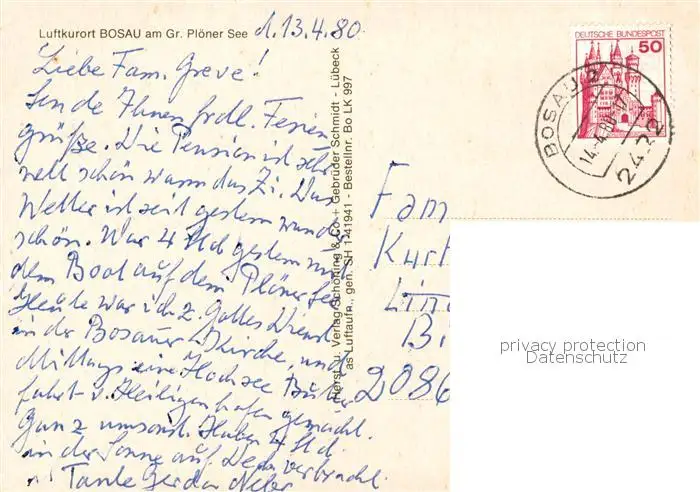 Luftkurort BOSAU am Gr. Plöner See
d. 13.4.80.
Liebe Fam. Greve!
Sende Ihnen frdl. Ferien
grüße. Die Pension ist sehr
nett schön warm das Zi. Das
Wetter ist seit gestern wunder
schön. War 4 Std gestern mit
dem Boot auf dem Plöner See
Heute war ich z. Gottes Dienst
in der Bosauer Kirche, und
Mittags eine Hochsee
fahrt v. Heiligenhafen gemacht.
Ganz umsonst. Haben 4 Std.
in der Sonne auf Deck verbracht.
Tante Gerda
Herst. u. Verlag Schöning & Co. + Gebrüder Schmidt - Lübeck
as Luftaufn., gen. SH 1-41941 - Bestellnr. Bo LK 997
DEUTSCHE BUNDESPOST
50
BOSAU 2
14.-4.80-17
2422
Fam
Kurt
Lin
Bi
2086
privacy protection
Datenschutz